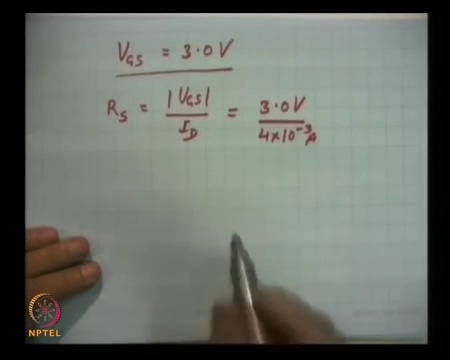 V_GS = 3.0 V
R_S = |V_GS| / I_D = 3.0 V / 4×10^-3 A
NPTEL